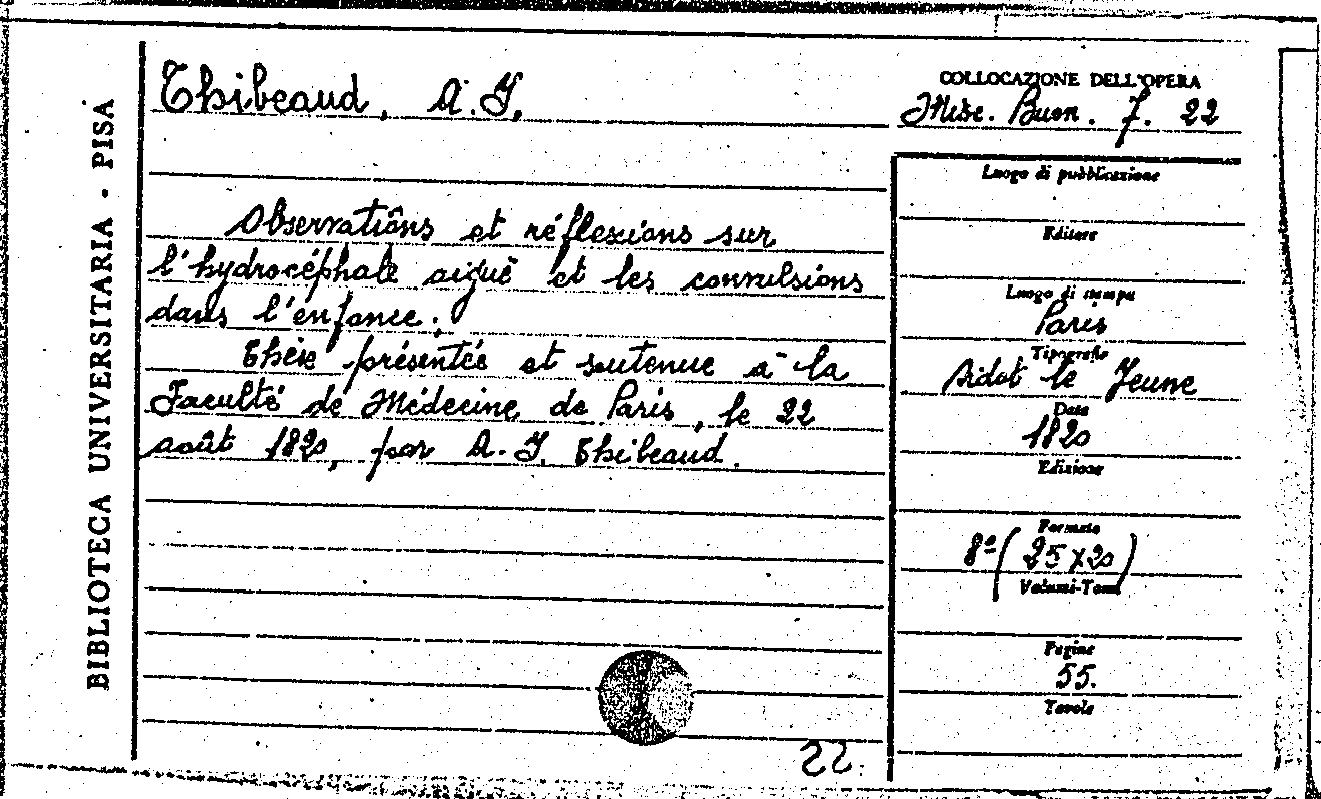 BIBLIOTECA UNIVERSITARIA - PISA
Thibeaud, A.J.
Observations et réflexions sur
l'hydrocéphale aiguë et les convulsions
dans l'enfance;
Thèse présentée et soutenue à la
Faculté de Médecine de Paris, le 22
août 1820, par A.J. Thibeaud.
22.
COLLOCAZIONE DELL'OPERA
Misc. Buon. 7. 22
Luogo di pubblicazione
Editore
Luogo di stampa
Paris
Tipografo
Didot le Jeune
Data
1820
Edizione
Formato
8º (25x20)
Volumi-Tomi
Pagine
55.
Tavole